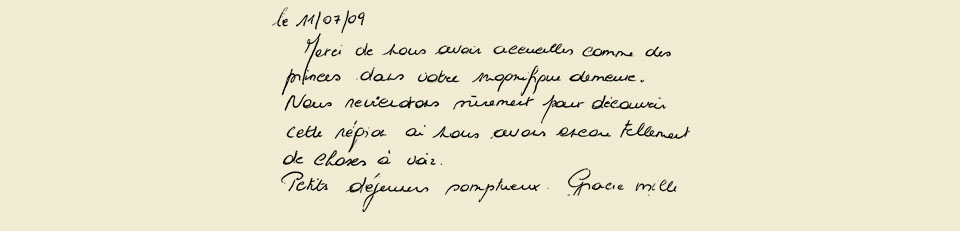 le 11/07/09
Merci de nous avoir accueilles comme des
princes dans votre magnifique demeure.
Nous reviendrons sûrement pour découvrir
cette région où nous avons encore tellement
de choses à voir.
Petits déjeuners somptueux. Gracie mille